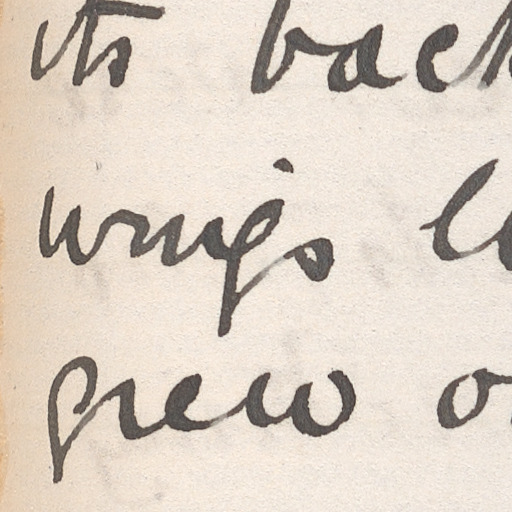 its back
wings l
grew o